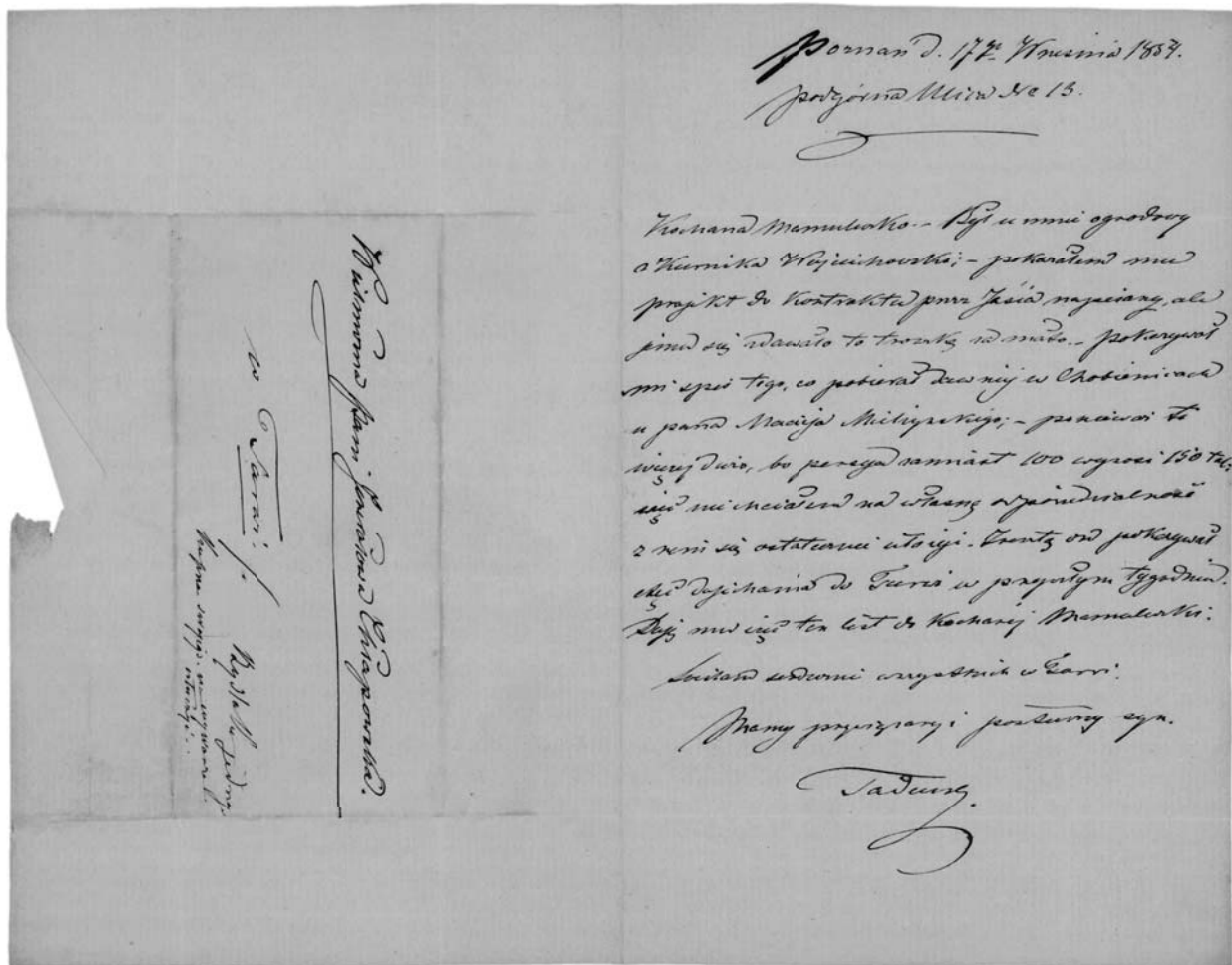 Poznań d. 17go Września 1857.
podgórna Ulica No 13.
Kochana Mamuleczko. - Był u mnie ogrodowy
z Kurnika Wojciechowski; - pokazałem mu
projekt do Kontraktu przez Jasia napisany, ale
jemu się zdawało to troszkę za mało. - pokazywał
mi spis tego, co pobierał dawniej w Chobienicach
u pana Macieja Mielżyńskiego; - ponieważ to
więcej dużo, bo pensya zamiast 100 wynosi 150 tal;
więc nie chciałem na własną odpowiedzialność
z nim się ostatecznie ułożyć. Zresztą on pokazywał
chęć dojechania do Turwi w przyszłym tygodniu.
Daję mu więc ten list do Kochanéj Mamuleczki.
Ściskam serdecznie wszystkich w Turwi.
Mamy przywiązany i posłuszny syn.
Tadeusz.
Wielmożna Pani Chłapowska.
w Turwi.